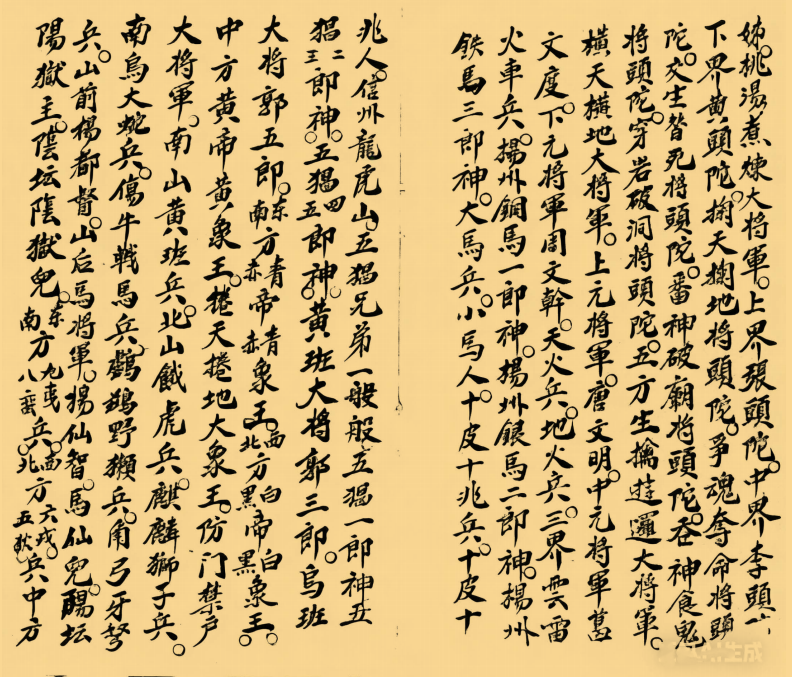 姊。桃湯煮煉大將軍。上界張頭陀。中界李頭
下界黄頭陀。掬天掬地將頭陀。爭魂奪命將頭
陀。交生替死將頭陀。番神破廟將頭陀。吞神食鬼
將頭陀。穿岩破洞將頭陀。五方生擒遊邏大將軍。
橫天橫地大將軍。上元將軍。唐文明。中元將軍葛
文度。下元將軍周文幹。天火兵。地火兵。三界雲雷
火車兵。揚州銅馬一郎神。揚州銀馬二郎神。揚州
鉄馬三郎神。大馬兵。小馬人。十皮十兆兵。十皮十
兆人。信州龍虎山。五猖兄弟一般般。五猖一郎神五
猖二三郎神。五猖四五郎神。黄班大將郭三郎。烏班
大將郭五郎。東南方青赤帝青赤象王。西北方白黑帝白黑象王。
中方黄帝黄象王。捲天捲地大象王。防门禁戶
大將軍。南山黄班兵。北山餓虎兵。麒麟獅子兵。
南烏大蛇兵。傷牛戦馬兵。鸚鵡野獺兵。角弓牙弩
兵。山前楊都督。山后馬將軍。楊仙智。馬仙兒。陽坛
陽獄主。陰坛陰獄兒。東南方九夷八蛮兵。西北方六戎五狄兵。中方
生成